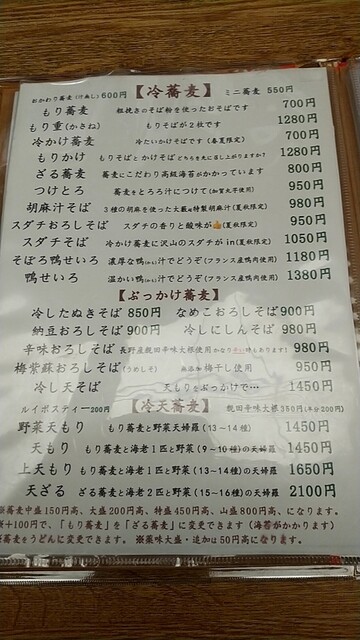 おかわり蕎麦(汁無し)600円 【冷蕎麦】 ミニ蕎麦 550円
もり蕎麦 粗挽きのそば粉を使ったおそばです 700円
もり重(かさね) もりそばが2枚です 1280円
冷かけ蕎麦 冷たいかけそばです (春夏限定) 700円
もりかけ もりそばとかけそばどちらを先に召し上がりますか? 1280円
ざる蕎麦 蕎麦にこだわり高級海苔がかかっています 800円
つけとろ 蕎麦をとろろ汁につけて(加賀丸子使用) 950円
胡麻汁そば 3種の胡麻を使った大薮庵特製胡麻汁(夏秋限定) 980円
スダチおろしそば スダチの香りと酸味が👍(夏秋限定) 950円
スダチそば 冷かけ蕎麦に沢山のスダチが in(夏秋限定) 1050円
そぼろ鴨せいろ 濃厚な鴨汁でどうぞ(フランス産鴨肉使用) 1180円
鴨せいろ 温かい鴨汁でどうぞ(フランス産鴨肉使用) 1380円
【ぶっかけ蕎麦】
冷したぬきそば 850円 なめこおろしそば900円
納豆おろしそば900円 冷しにしんそば 980円
辛味おろしそば 長野産親田辛味大根使用(かなり辛い時もあります) 980円
梅紫蘇おろしそば(うめしそ) 無添加 梅干し使用 950円
冷し天そば 天もりをぶっかけで… 1450円
ルイボスティー200円 【冷天蕎麦】 親田辛味大根 350円(半分200円)
野菜天もり もり蕎麦と野菜天婦羅(13~14種) 1450円
天もり もり蕎麦と海老1匹と野菜(9~10種)の天婦羅 1450円
上天もり もり蕎麦と海老1匹と野菜(13~14種)の天婦羅 1650円
天ざる ざる蕎麦と海老2匹と野菜(15~16種)の天婦羅 2100円
※蕎麦中盛150円高、大盛200円高、特盛450円高、山盛800円高、になります。
※+100円で、「もり蕎麦」を「ざる蕎麦」に変更できます (海苔がかかります)
蕎麦をうどんに変更できます。 ※薬味大盛・追加は50円高になります。